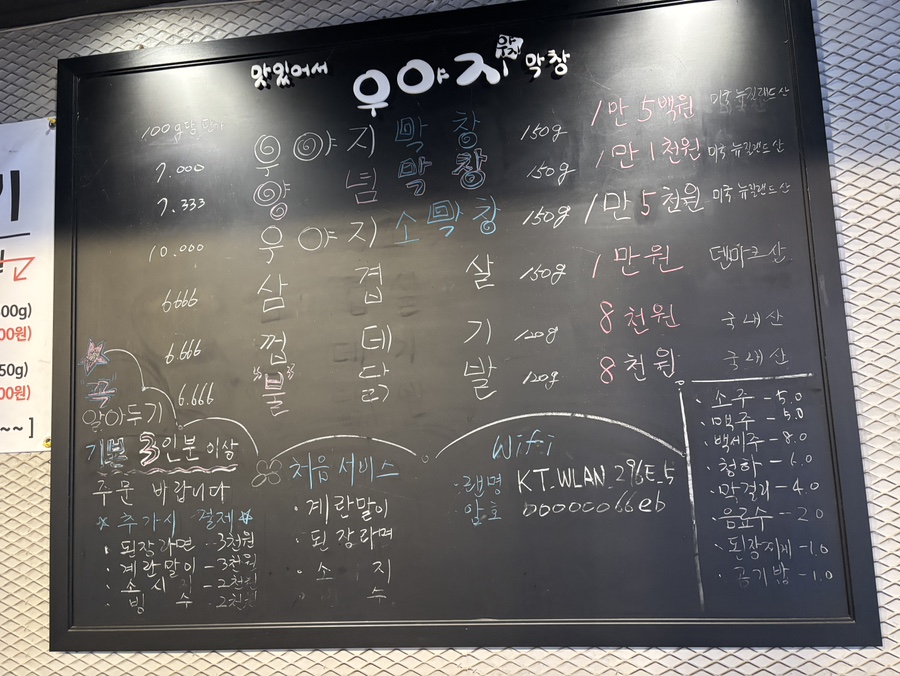 맛있어서 우야지 막창
100g당 단가
7.000 우야지막창 150g 1만5백원 미국 뉴질랜드산
7.333 양념막창 150g 1만1천원 미국 뉴질랜드산
10.000 우야지소막창 150g 1만5천원 미국 뉴질랜드산
6.666 삼겹살 150g 1만원 덴마크산
6.666 껍데기 120g 8천원 국내산
6.666 "불"닭발 120g 8천원 국내산
꼭
알아두기
기본 3인분 이상
주문 바랍니다
추가시 결제
· 된장라면 - 3천원
· 계란말이 - 3천원
· 소시 - 2천원
· 빙수 - 2천원
처음서비스
· 계란말이
· 된장라면
· 소 지
수
Wifi
· 랜명 KT_WLAN_296E_5
· 암호 00000066eb
· 소주 - 5.0
· 맥주 - 5.0
· 백세주 - 8.0
· 청하 - 6.0
· 막걸리 - 4.0
· 음료수 - 2.0
· 된장찌게 - 1.0
· 공기밥 - 1.0
기
00g)
00원)
50g)
00원)
~~ ]